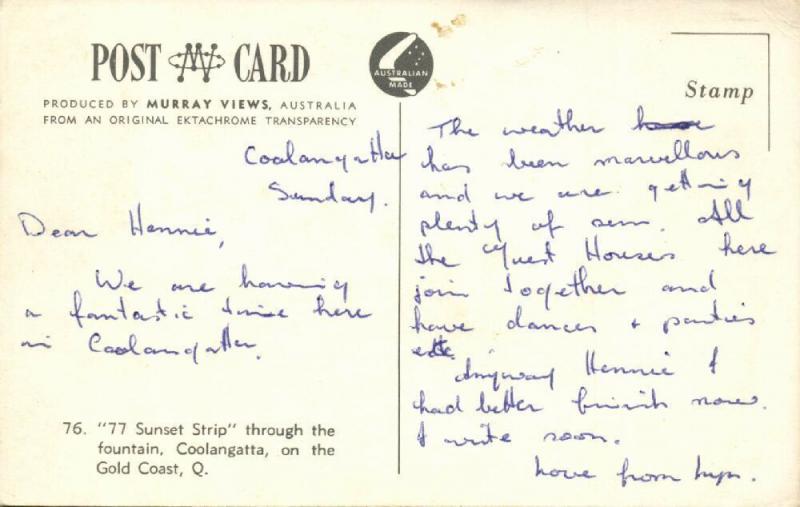 POST CARD
PRODUCED BY MURRAY VIEWS, AUSTRALIA
FROM AN ORIGINAL EKTACHROME TRANSPARENCY
AUSTRALIAN
MADE
Stamp
Coolangatta
Sunday.
Dear Hennie,
We are having
a fantastic time here
in Coolangatta.
76. "77 Sunset Strip" through the
fountain, Coolangatta, on the
Gold Coast, Q.
The weather
has been marvellous
and we are getting
plenty of sun. All
the Guest Houses here
join together and
have dances + parties
etc.
Anyway Hennie I
had better finish now.
I write soon.
Love from